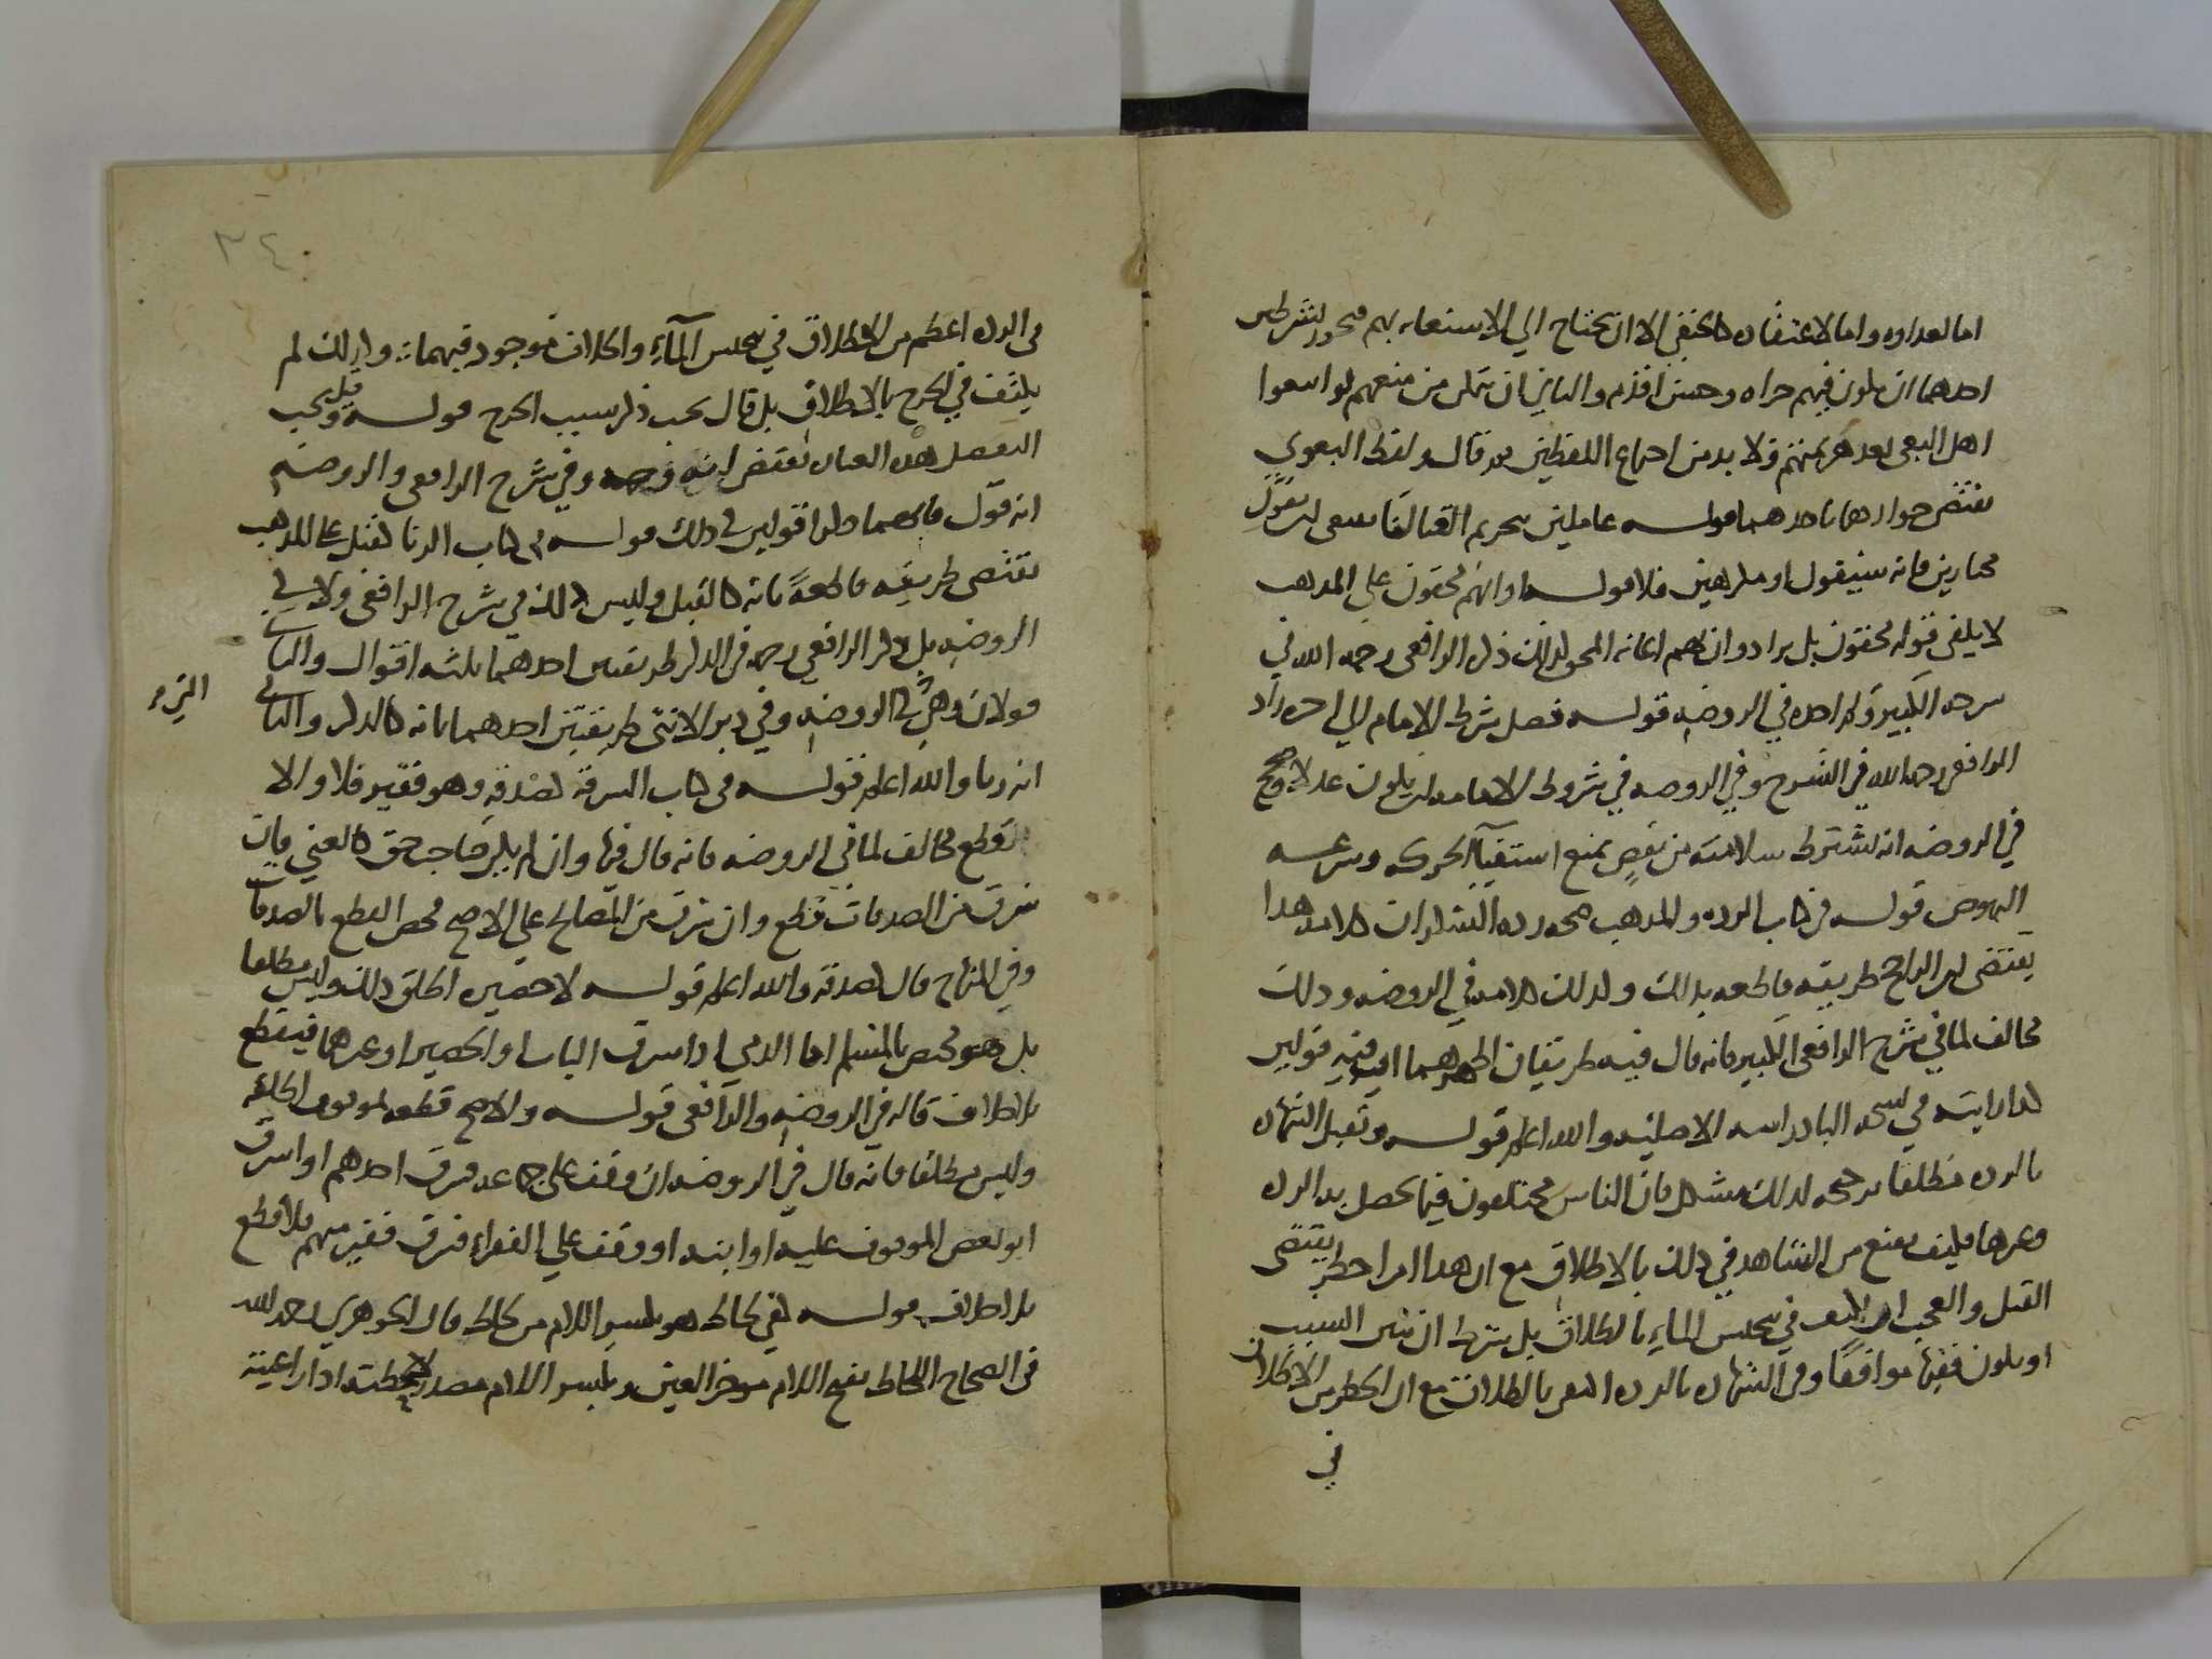 اما لعداوه واما لاعتقاد كالحنفي الا ان يحتاج الي الاستعانه بهم فيجوز بشرطين
احدهما ان يكون فيهم جراه وحسن اقدام والثاني ان يتمكن من منعهم لو اتبعوا
اهل البغي بعد هزيمتهم ولا بد من اجتماع الشرطين قال ولفظ البغوي
يقتضي جوازها باحدهما قوله عالمين بتحريم القتال ينبغي ان يقول
مختارين فانه سيقول او مكرهين فلا قوله او انهم محقون علي المذهب
لا يكفي قوله محقون بل يراد وان لهم اعانه المحق لذلك ذكره الرافعي رحمه الله في
شرحه الكبير في الروضه قوله فصل شرط الامام الي اخره زاد
الرافعي رحمه الله في الشرح وفي الروضه في شروط الامامه ان يكون عدلا وصحح
في الروضه انه تشترط سلامته من نقص يمنع استيفا الحركه وسرعه
النهوض قوله في كتاب الرده والمذهب صحه رده السكران كلامه هذا
يقتضي ان الراجح طريقه قاطعه بذلك وكذلك كلامه في الروضه وذلك
مخالف لما في شرح الرافعي الكبير فانه قال فيه طريقان اظهرهما ان فيه قولين
كذا رايته في نسخه البادرايه الاصليه والله اعلم قوله وتقبل الشهاده
بالرده مطلقا ترجيحه لذلك مشكل فان الناس مختلفون فيما يحصل به الرده
وغيرها فكيف يقنع من الشاهد في ذلك بالاطلاق مع ان هذا امر اخطر يقتضي
القتل والعجب انه لم يكتف في تنجيس الماء بالاطلاق بل شرط ان يبين السبب
او يكون فقيها موافقا وفي الشهاده بالرده اكتفي بالاطلاق مع ان الخطر من الاطلاق
في
٣٤
في الرده اعظم من الاطلاق في تنجيس المآء والخلاف موجود فيهما وكذلك لم
يكتف في الجرح بالاطلاق بل قال يجب ذكر سبب الجرح قوله وقيل يجب
التفصيل هذه العباره تقتضي انه وجه وفي شرح الرافعي والروضه
انه قول فانهما حكيا قولين في ذلك قوله في كتاب الزنا كقبل علي المذهب
يقتضي طريقه قاطعة بانه كالقبل وليس كذلك في شرح الرافعي ولا في
الروضه بل ذكر الرافعي رحمه في الذكر طريقين احدهما ثلثه اقوال والثاني
قولان وهي في الروضه وفي دبر الانثي طريقين احدهما بانه كالذكر والثاني
انه زنا والله اعلم قوله في كتاب السرقة لصدقه وهو فقير فلا والا
قطع مخالف لما في الروضه فانه قال فيها وان لم يكن صاحب حق كالغني فان
سرق من الصدقات قطع وان سرق من المصالح علي الاصح فخص القطع بالصدقات
وفي المنهاج قال لصدقه والله اعلم قوله لا حصيره اطلق ذلك وليس مطلقا
بل هو مختص بالمسلم اما الذمي اذا سرق الباب او الحصير او غيرهما فيقطع
بلا خلاف قاله في الروضه والرافعي قوله والاصح قطعه بموقوف اطلقه
وليس مطلقا فانه قال في الروضه ان وقف علي جماعه فسرق احدهم او سرق
ابو بعض الموقوف عليه او ابنه او وقف علي الفقراء فسرق فقير منهم فلا قطع
بلا خلاف قوله لفي لحاظ هو بكسر اللام من لحاظ قال الجوهري رحمه الله
في الصحاح اللحاظ بفتح اللام موخر العين وبكسر اللام مصدر لاحظته اذا راعيته